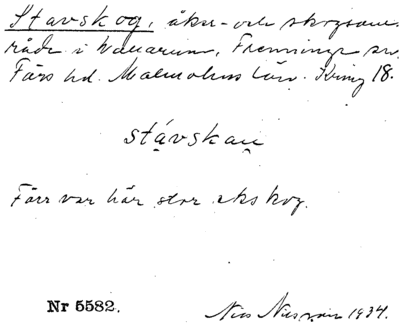 Stavskog, åker- och skogsom-
råde i Wallarum, Fränninge sn.
Färs hd. Malmöhus län. King 18.
stávskau̯
Förr var här stor ekskog.
Nr 5582. Nils Nilsson 1934.